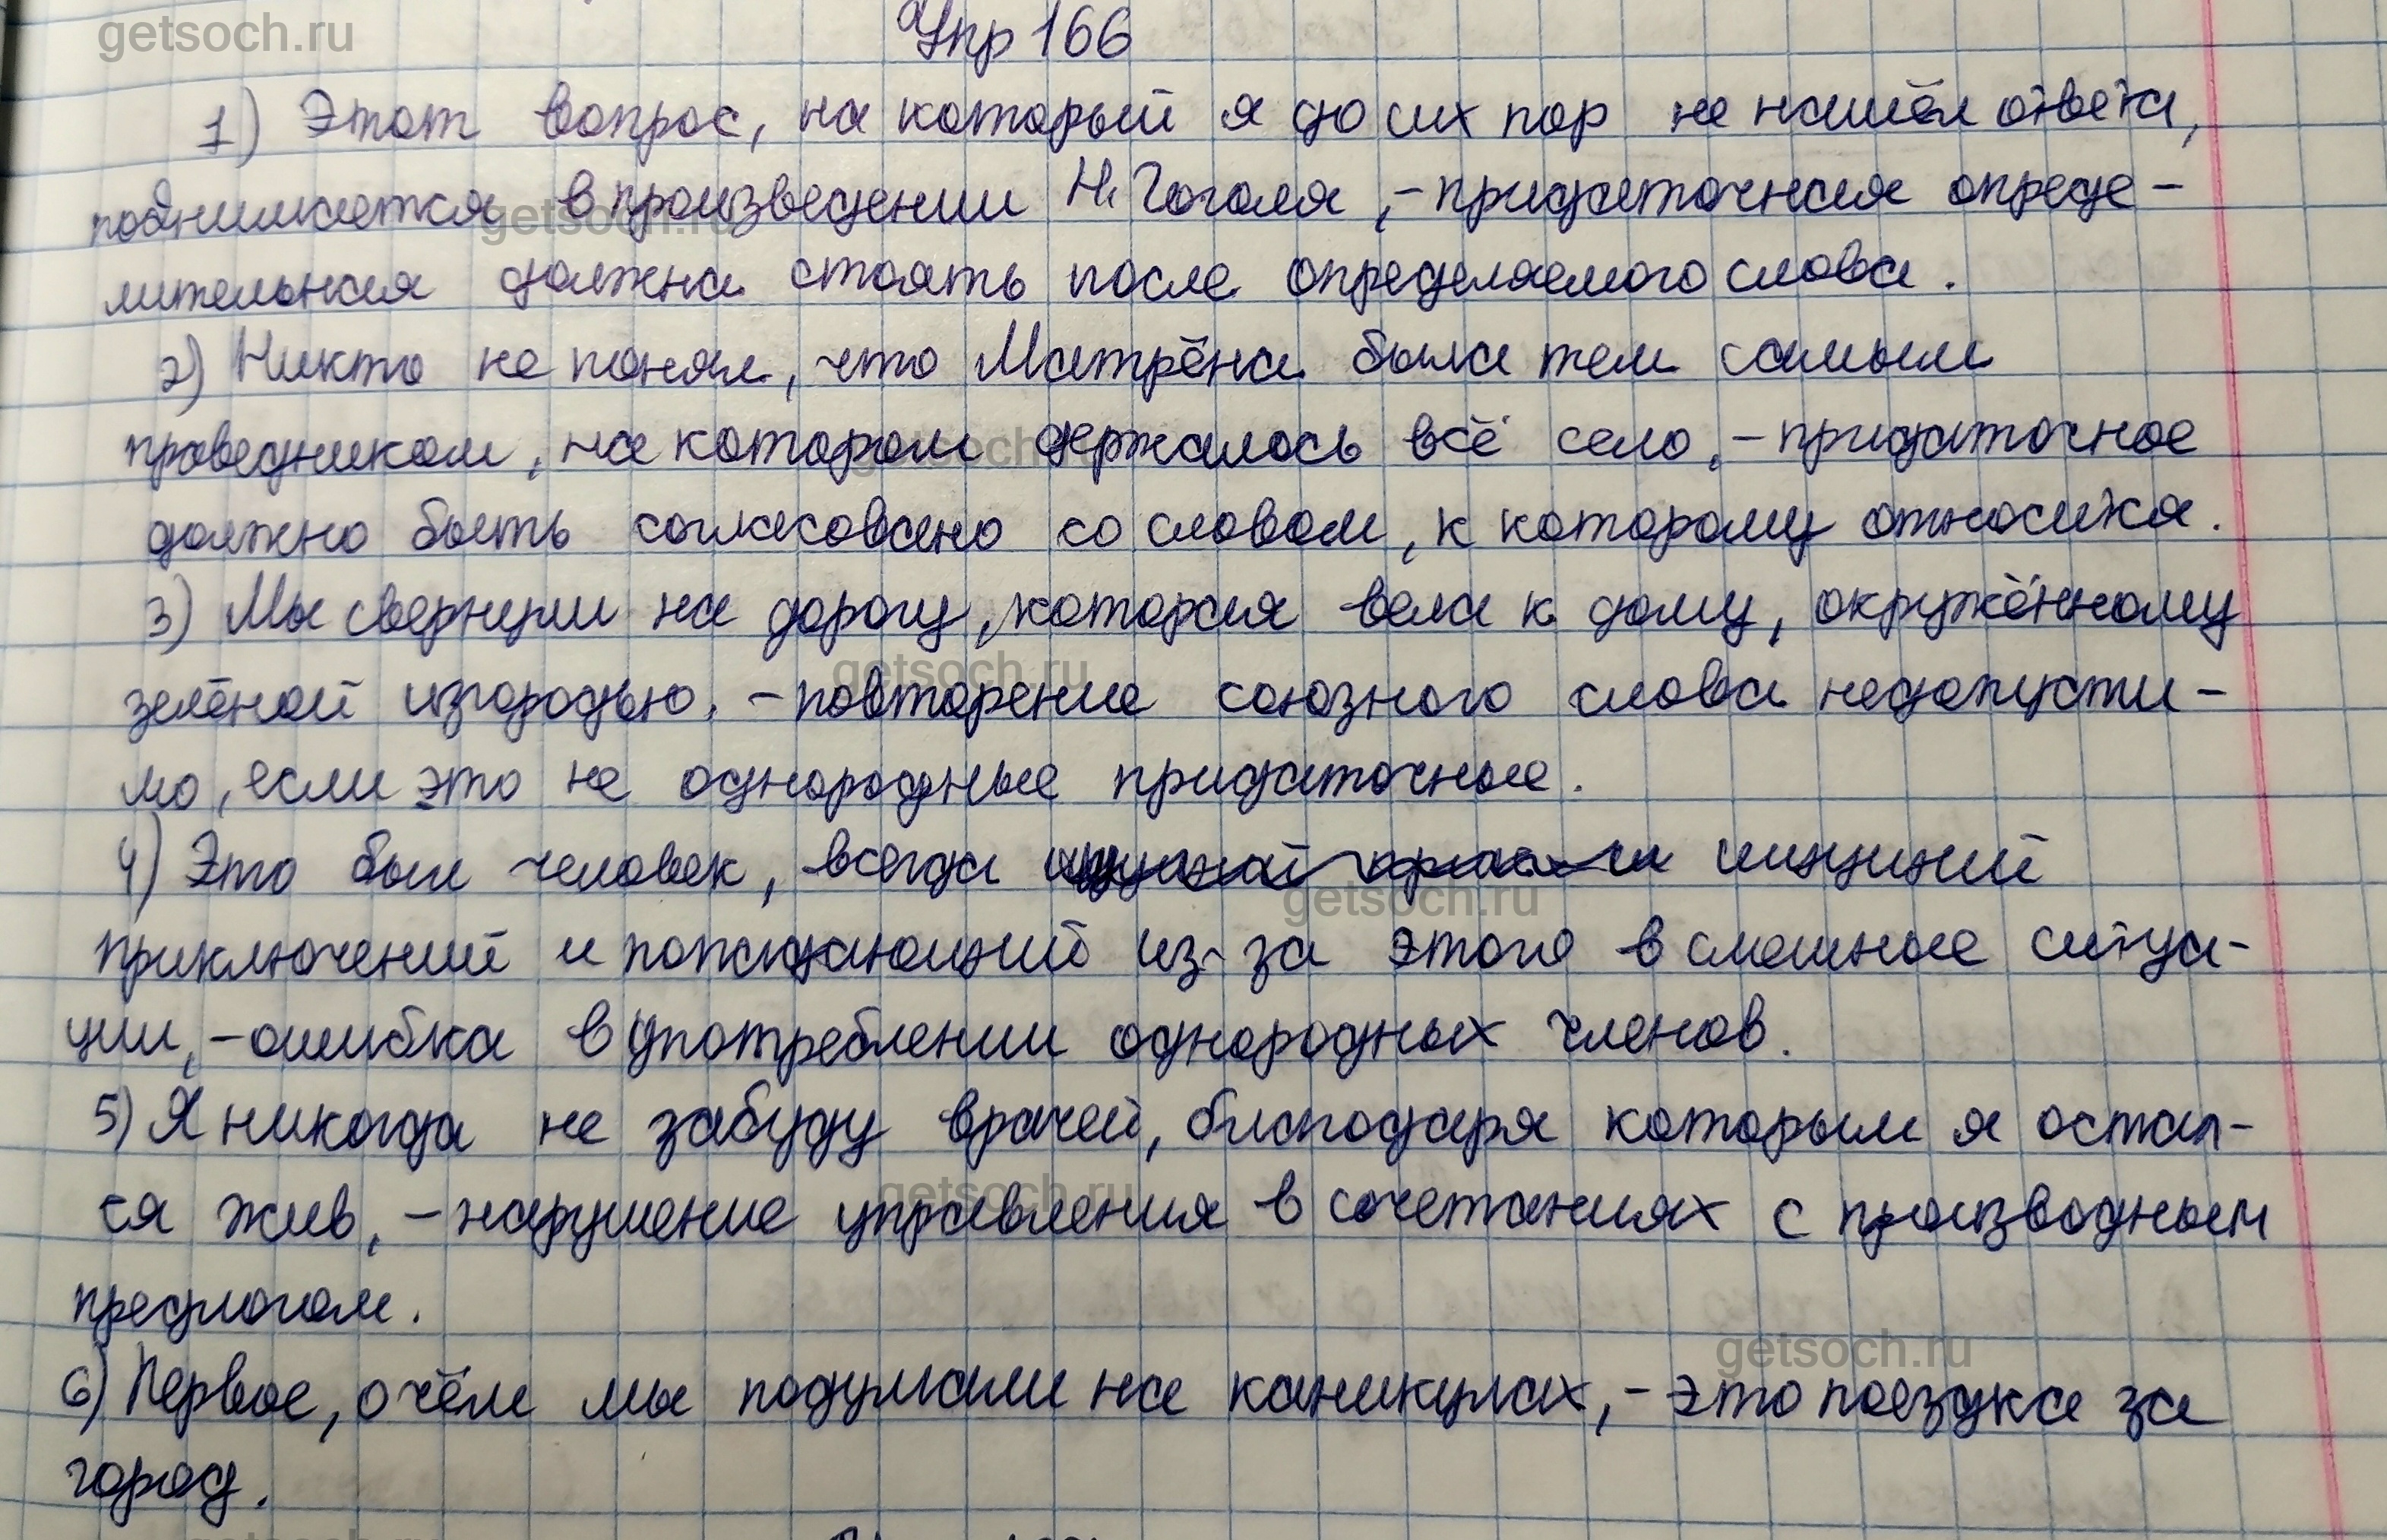 getsoch.ru
Упр 166
1) Этот вопрос, на который я до сих пор не нашёл ответа,
поднимается в произведении Н. Гоголя, - придаточная опреде-
getsoch.ru
лительная должна стоять после определяемого слова.
2) Никто не понял, что Матрёна была тем самым
праведником, на котором держалось всё село, - придаточное
getsoch.ru
должно быть согласовано со словом, к которому относится.
3) Мы свернули на дорогу, которая вела к дому, окружённому
getsoch.ru
зелёной изгородью, - повторение союзного слова недопусти-
мо, если это не однородные придаточные.
4) Это был человек, всегда ищущий
getsoch.ru
приключений и попадающий из-за этого в смешные ситуа-
ции, - ошибка в употреблении однородных членов.
5) Я никогда не забуду врачей, благодаря которым я остал-
getsoch.ru
ся жив, - нарушение управления в сочетаниях с производным
предлогом.
getsoch.ru
6) Первое, о чём мы подумали на каникулах, - это поездка за
город.